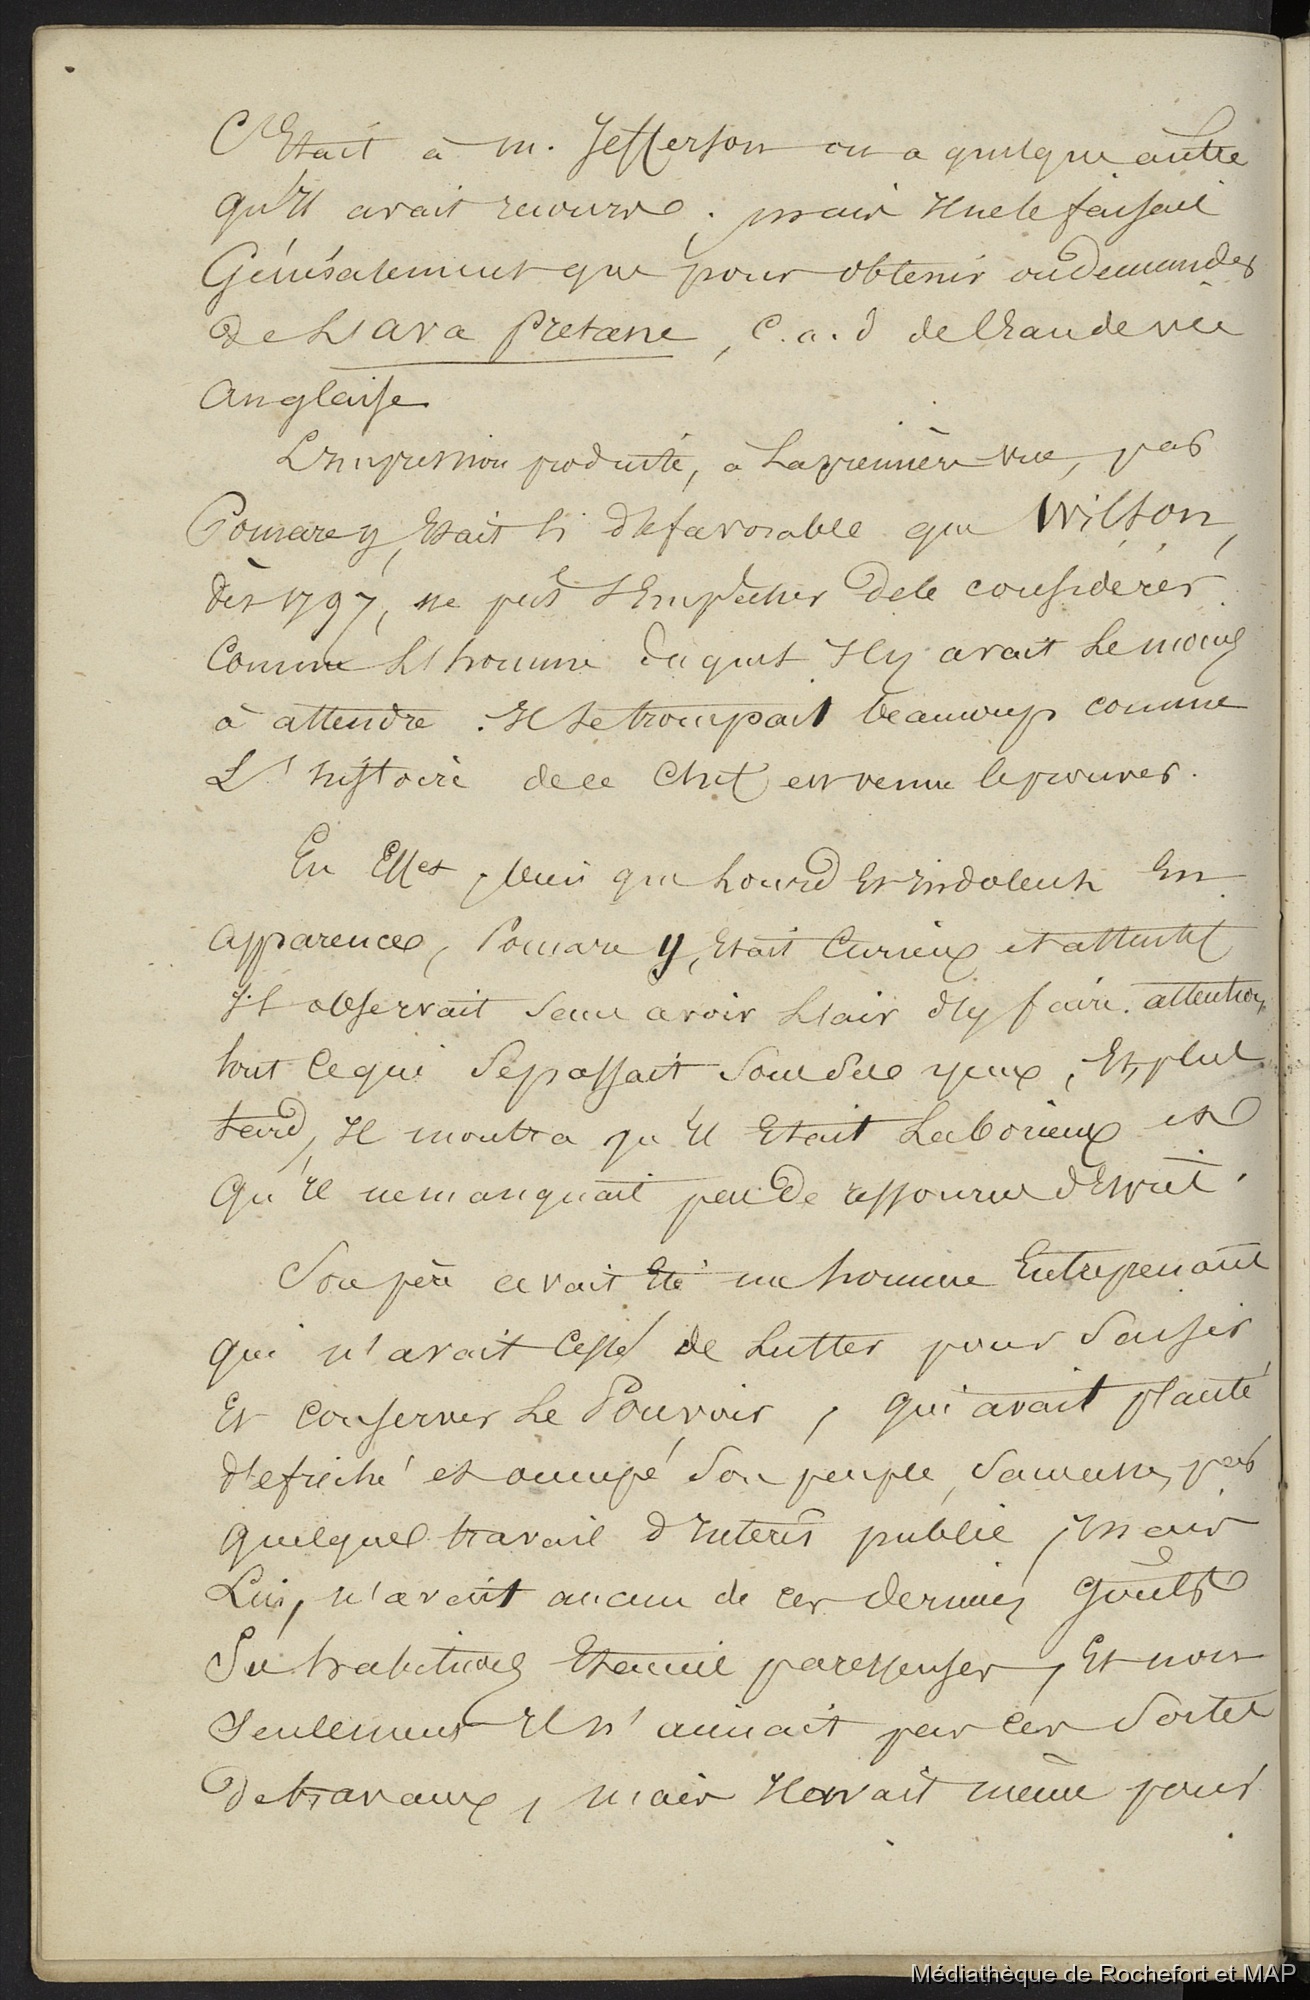 C'Etait à M. Jefferson ou a quelque autre
qu'Il avait recours ; mais Il ne le faisait
Généralement que pour obtenir ou demander
de L'ava Pretane, C.a.d de l'Eau de vie
Anglaise
L'Impression produite, à La première vue, par
Pomare y, Etait si défavorable que Wilson,
dès 1797, ne put s'Empêcher de le considérer
Comme L'homme duquel Il y avait Le moins
à attendre. Il se trompait beaucoup comme
L'histoire de ce Chef est venue le prouver.
En Effet, bien que Lourd Et Indolent En
Apparence, Pomare y, Etait Curieux et attentif
Il observait sans avoir L'air d'y faire attention,
tout Ce qui Se passait Sous Ses yeux, Et, plus
tard, Il montra qu'Il Etait Laborieux et
Qu'Il ne manquait pas de ressources d'Esprit.
Son père avait Eté un homme Entreprenant
qui n'avait Cessé de Lutter pour Saisir
Et Conserver Le Pouvoir, qui avait planté
défriché et occupé Son peuple, Souvent, par
quelques travail d'Interêt public, mais
Lui, n'avait aucun de ces derniers Goûts
Ses habitudes Etaient paresseuses, Et non
Seulement Il n'aimait pas ces Sortes
De travaux, mais Il avait même pour
Médiathèque de Rochefort et MAP